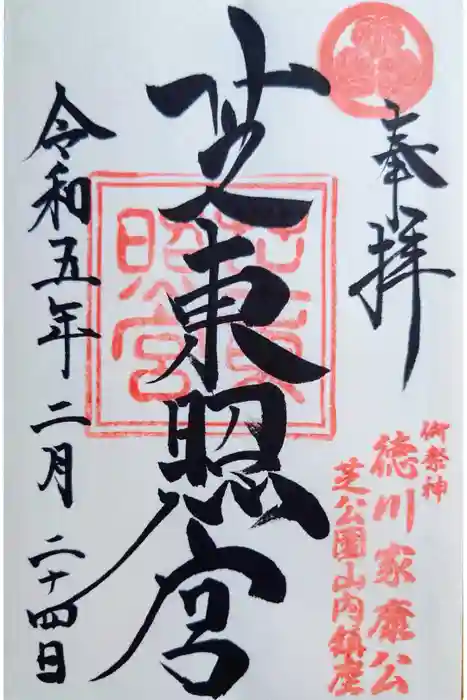 奉拝
御祭神
徳川家康公
芝公園山内鎮座
芝東照宮
芝東照宮
令和五年二月二十四日